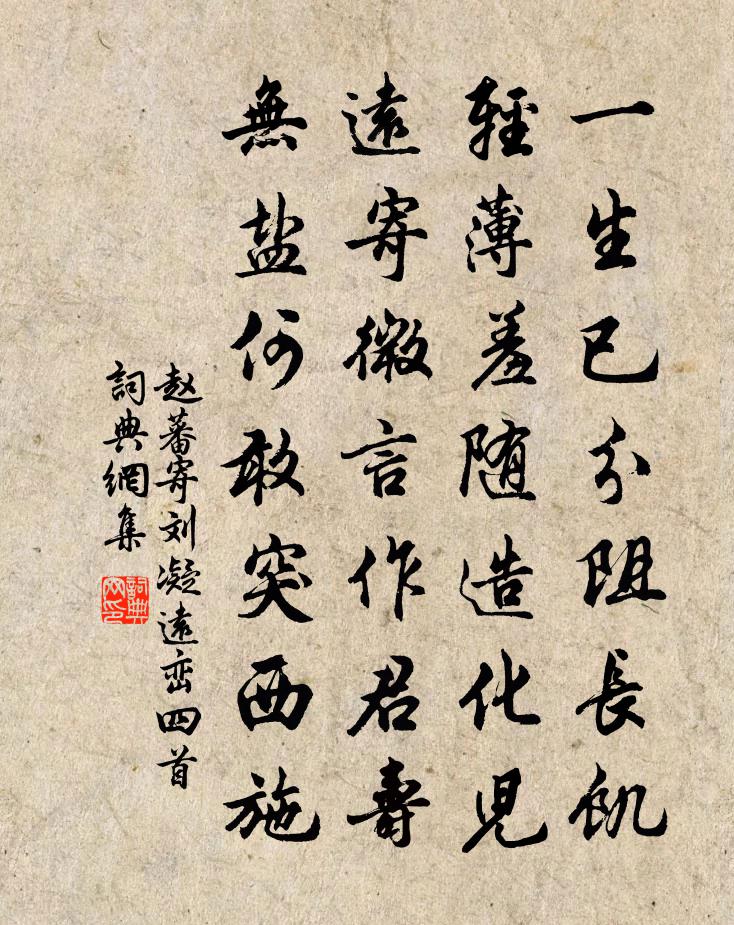 一生已分阻長飢
輕薄羞随造化児
遠寄微言作君壽
無盐何敢突西施
赵蕃寄刘凝遠峦四首
詞典網集
詞典網印